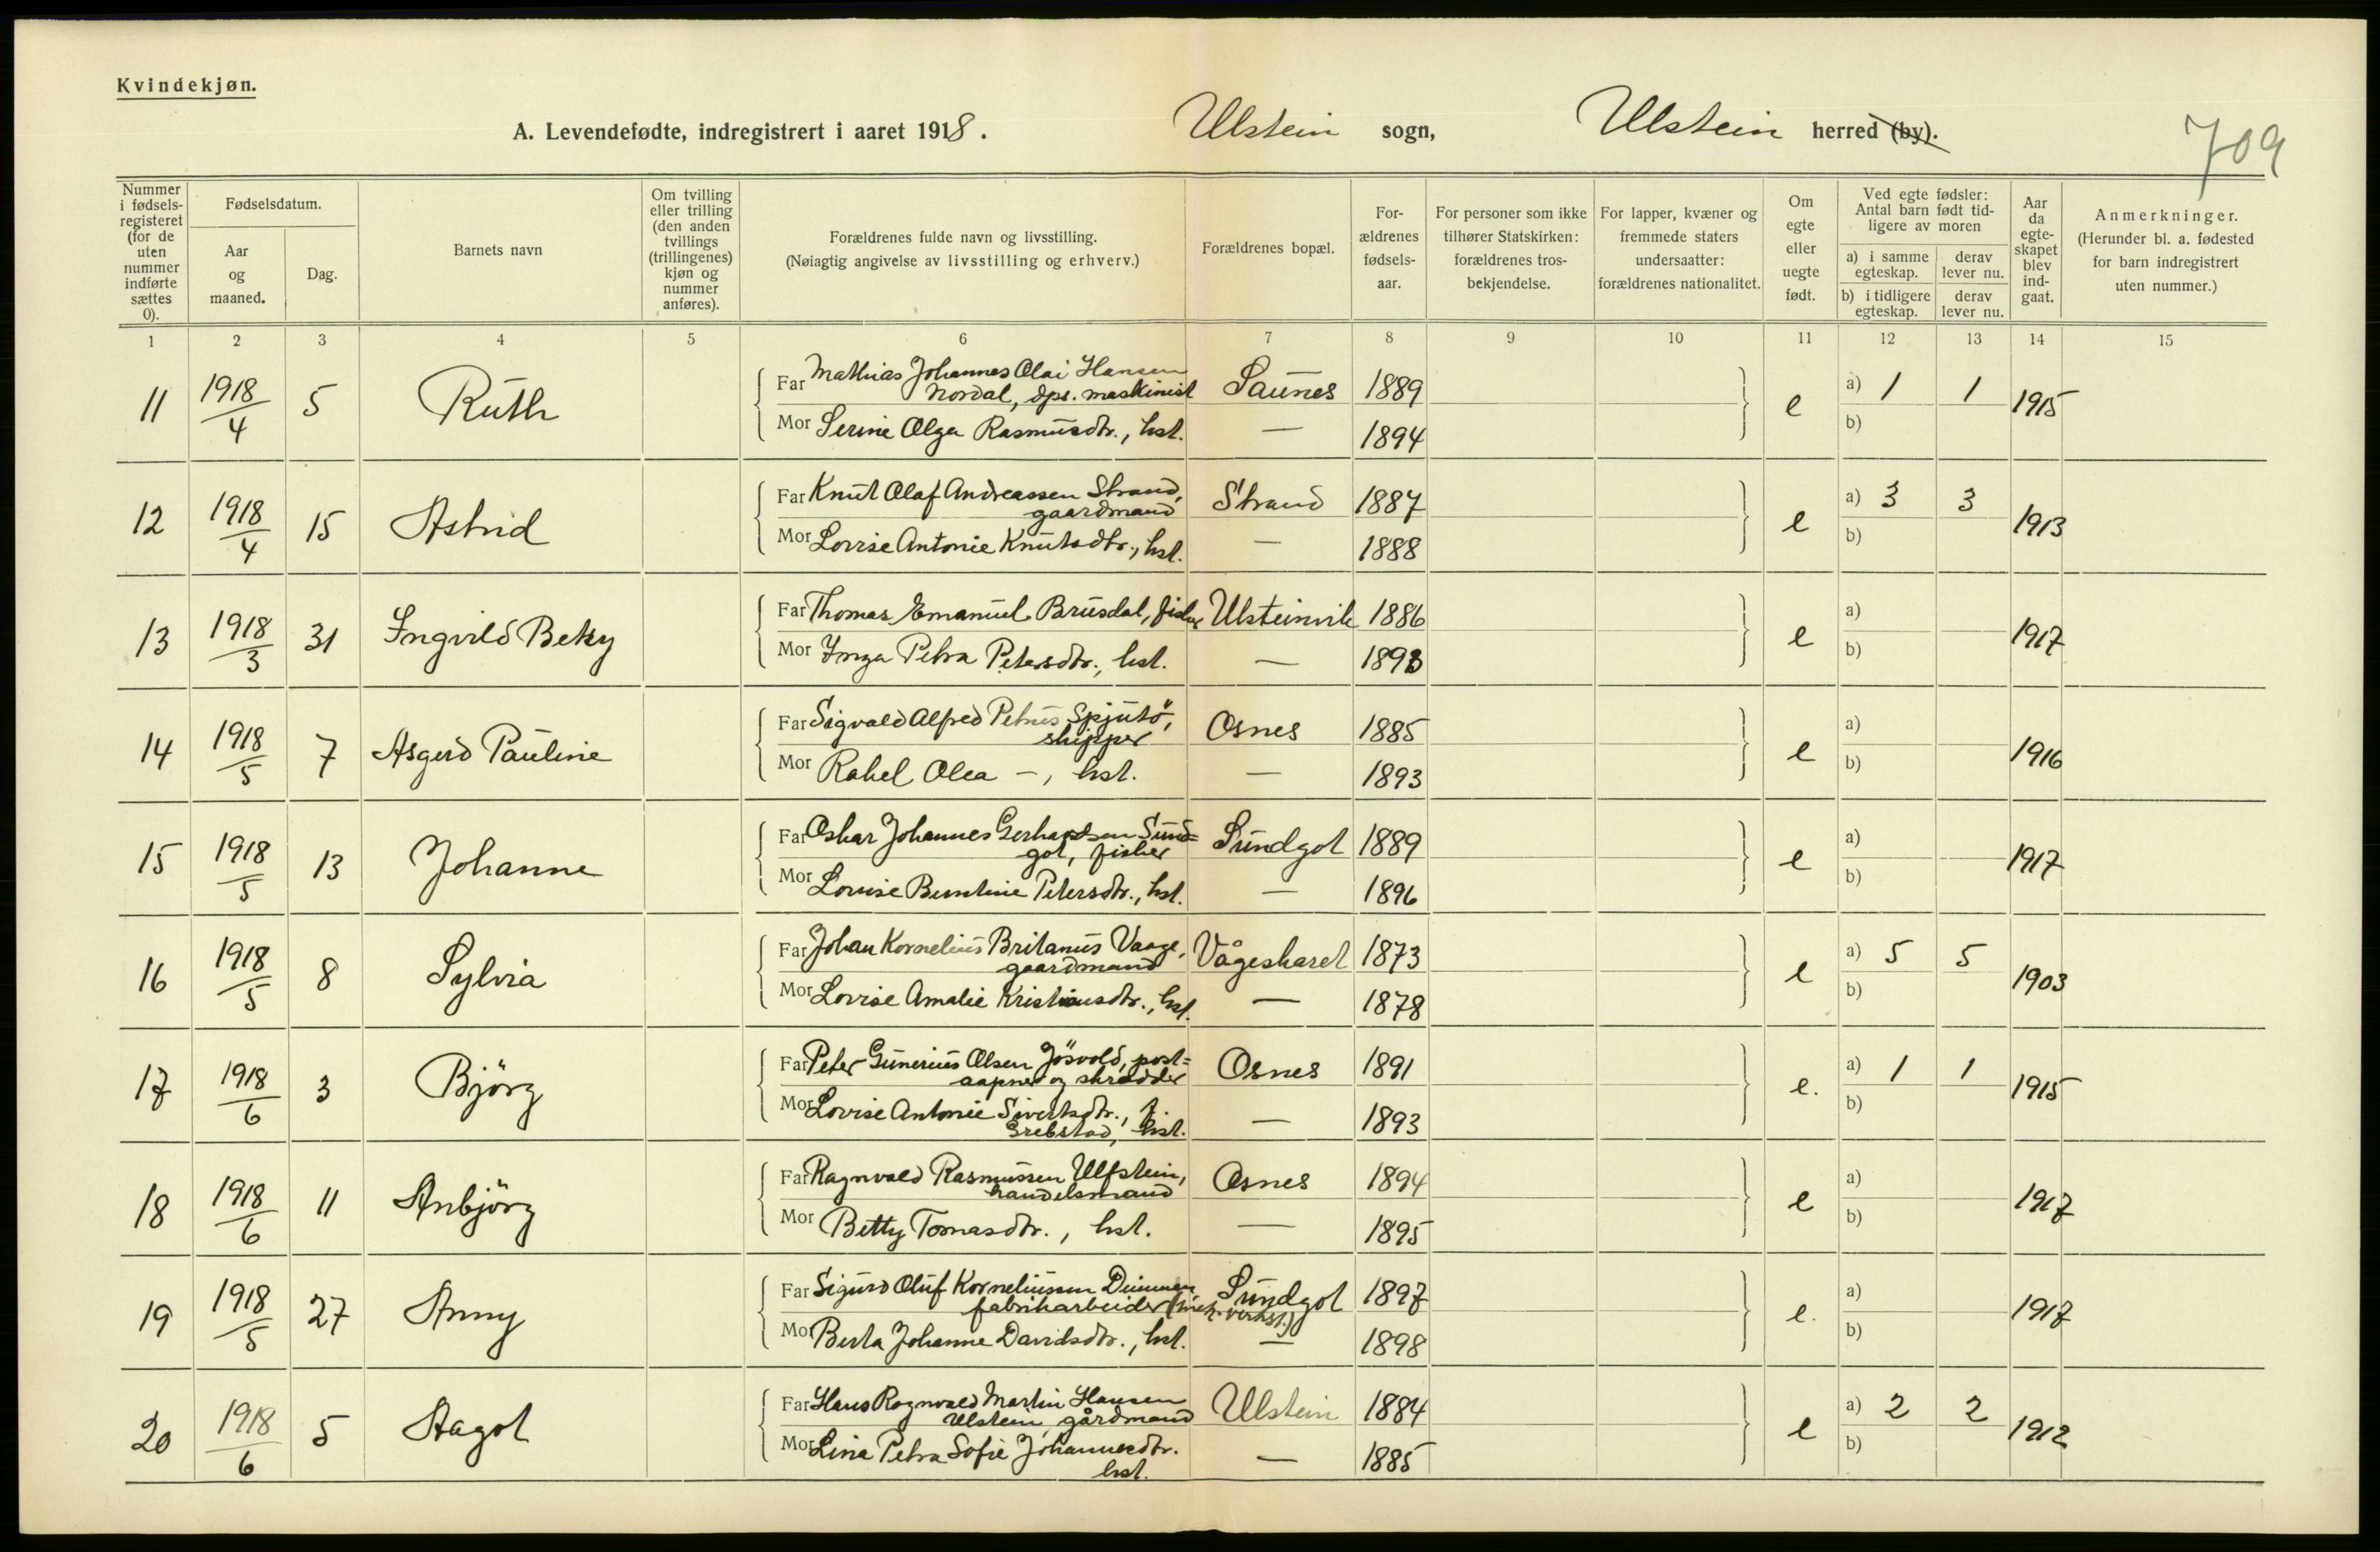 Kvindekjøn.
A. Levendefødte, indregistrert i aaret 1918. Ulstein sogn, Ulstein herred (by).
709
Nummer i fødsels-registeret (for de uten nummer indførte sættes 0).
Fødselsdatum.
Aar og maaned.
Dag.
Barnets navn
Om tvilling eller trilling (den anden tvillings (trillingenes) kjøn og nummer anføres).
Forældrenes fulde navn og livsstilling.
(Nøiagtig angivelse av livsstilling og erhverv.)
Forældrenes bopæl.
For-ældrenes fødsels-aar.
For personer som ikke tilhører Statskirken: forældrenes tros-bekjendelse.
For lapper, kvæner og fremmede staters undersaatter: forældrenes nationalitet.
Om egte eller uegte født.
Ved egte fødsler: Antal barn født tid-ligere av moren
a) i samme egteskap.
derav lever nu.
b) i tidligere egteskap.
derav lever nu.
Aar da egte-skapet blev ind-gaat.
Anmerkninger.
(Herunder bl. a. fødested for barn indregistrert uten nummer.)
1 2 3 4 5 6 7 8 9 10 11 12 13 14 15
11 1918/4 5 Ruth
Far Mathias Johannes Olai Hansen
Nordal, dps. maskinist Saunes 1889
Mor Serine Olga Rasmusdtr., hst. — 1894
e a) 1 1 1915
b)
12 1918/4 15 Astrid
Far Knut Olaf Andreassen Strand,
gaardmand Strand 1887
Mor Lovise Antonie Knutsdtr., hst. — 1888
e a) 3 3 1913
b)
13 1918/3 31 Ingvild Beky
Far Thomas Emanuel Brusdal, fisker Ulsteinvik 1886
Mor Inga Petra Petersdtr., hst. — 1893
e a) 1917
b)
14 1918/5 7 Asgerd Pauline
Far Sigvald Alfred Petrus Spjutö,
skipper Osnes 1885
Mor Rakel Olea —, hst. — 1893
e a) 1916
b)
15 1918/5 13 Johanne
Far Oskar Johannes Gerhardsen Sund=
got, fisker Sundgot 1889
Mor Lovise Berntine Petersdtr., hst. — 1896
e a) 1917
b)
16 1918/5 8 Sylvia
Far Johan Kornelius Britanus Vaage,
gaardmand Vågeskaret 1873
Mor Lovise Amalie Kristiansdtr., hst. — 1878
e a) 5 5 1903
b)
17 1918/6 3 Björg
Far Peter Gunerius Olsen Jösvold, post=
aapner og skrædder Osnes 1891
Mor Lovise Antonie Sivertsdtr.,
Grebstad, hst. — 1893
e. a) 1 1 1915
b)
18 1918/6 11 Anbjörg
Far Ragnvald Rasmussen Ulfstein,
handelsmand Osnes 1894
Mor Betty Tomasdtr., hst. — 1895
e a) 1917
b)
19 1918/5 27 Anny
Far Sigurd Oluf Korneliussen Dimmen,
fabrikarbeider (mek. verkst.) Sundgot 1897
Mor Berta Johanne Davidsdtr., hst. — 1898
e. a) 1917
b)
20 1918/6 5 Aagot
Far Hans Ragnvald Martin Hansen
Ulstein, gårdmand Ulstein 1884
Mor Lina Petra Sofie Johannesdtr.
hst. — 1885
e a) 2 2 1912
b)